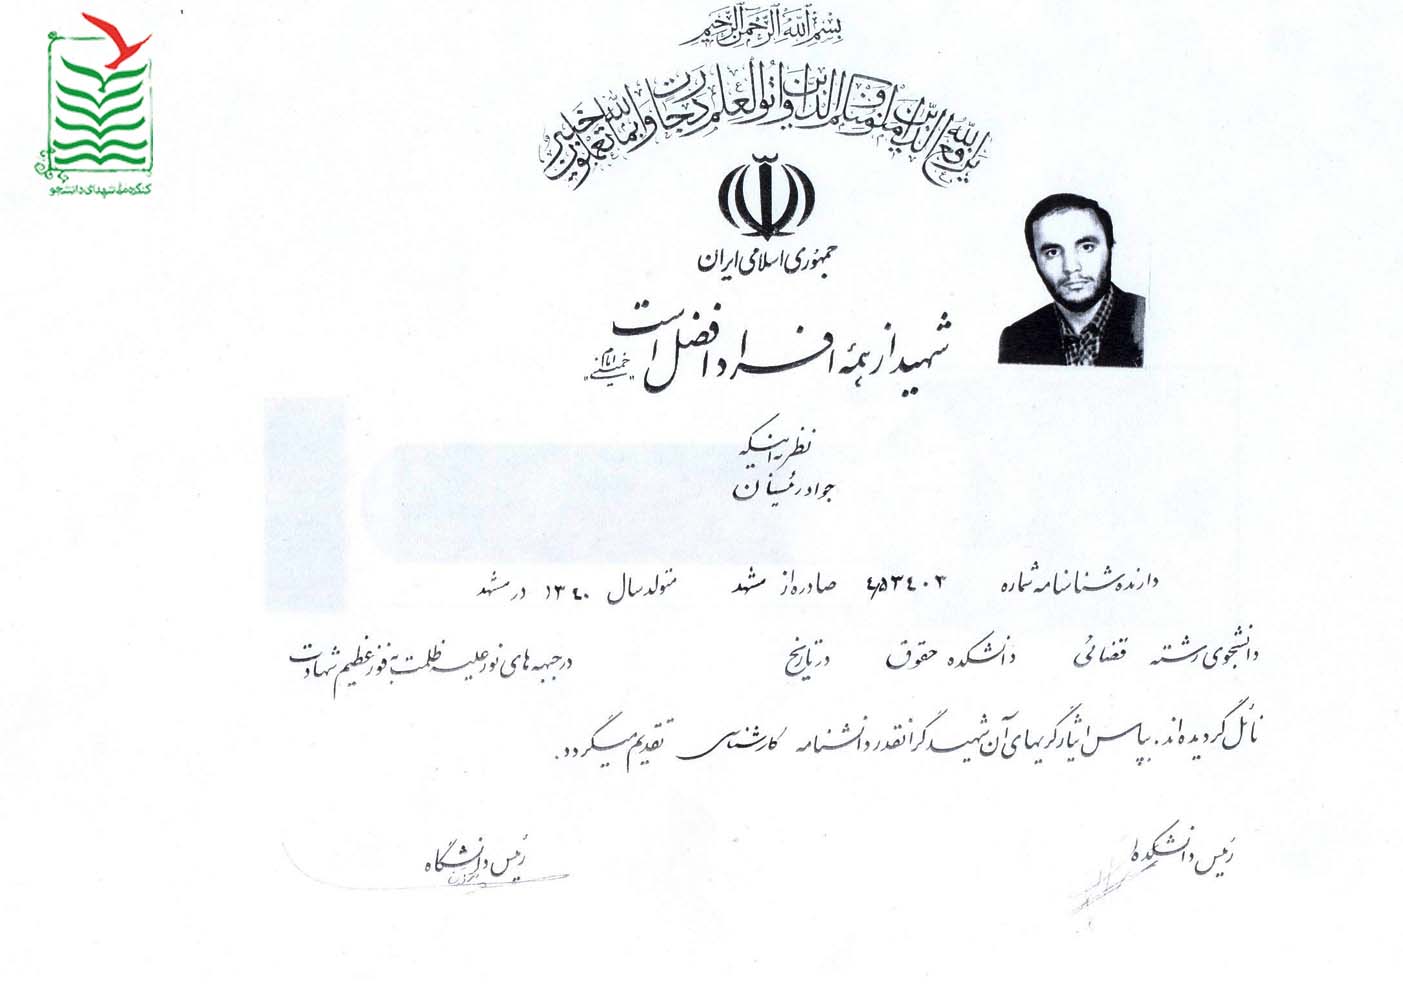 بسم الله الرحمن الرحیم
یرفع الله الذین آمنوا منکم والذین اوتوا العلم درجات والله بما تعملون خبیر
جمهوری اسلامی ایران
شهید از همهٔ افراد افضل است
"امام خمینی"
نظر به اینکه
جواد رئیسیان
دارنده شناسنامه شماره ۵۳۴۰۳ صادره از مشهد متولد سال ۱۳۴۰ در مشهد
دانشجوی رشته قضائی دانشکده حقوق در تاریخ در جبهه های نور علیه ظلمت به فوز عظیم شهادت
نائل گردیده اند. بپاس ایثارگریهای آن شهید گرانقدر دانشنامه کارشناسی تقدیم میگردد.
رئیس دانشکده
رئیس دانشگاه
کنگره ملی شهدای دانشجو